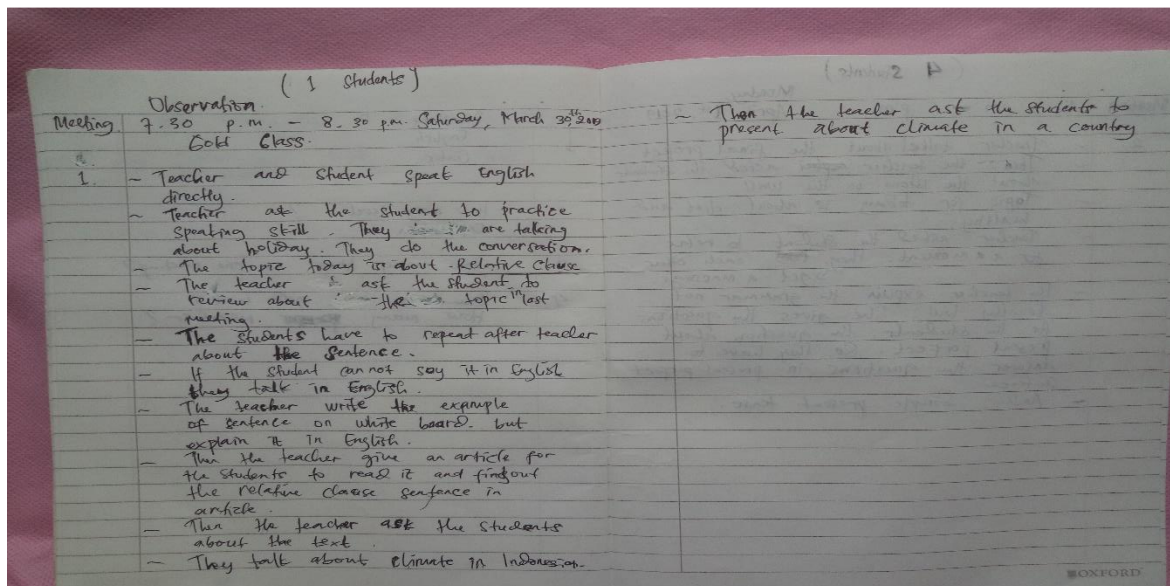 ( 1 Students )
Observation.
Meeting 7.30 p.m. - 8.30 p.m. Saturday, March 30th
Gold Class.
1. - Teacher and student speak English
directly.
- Teacher ask the student to practice
speaking skill. They are talking
about holiday. They do the conversation.
- The topic today is about Relative Clause
- The teacher ask the student to
review about the topic in last
meeting.
- The students have to repeat after teacher
about the sentence.
- If the student can not say it in English
they talk in English.
- The teacher write the example
of sentence on white board. but
explain it in English.
- Then the teacher give an article for
the students to read it and find out
the relative clause sentence in
article.
- Then the teacher ask the students
about the text.
- They talk about climate in Indonesia.
- Then the teacher ask the students to
present about climate in a country
OXFORD